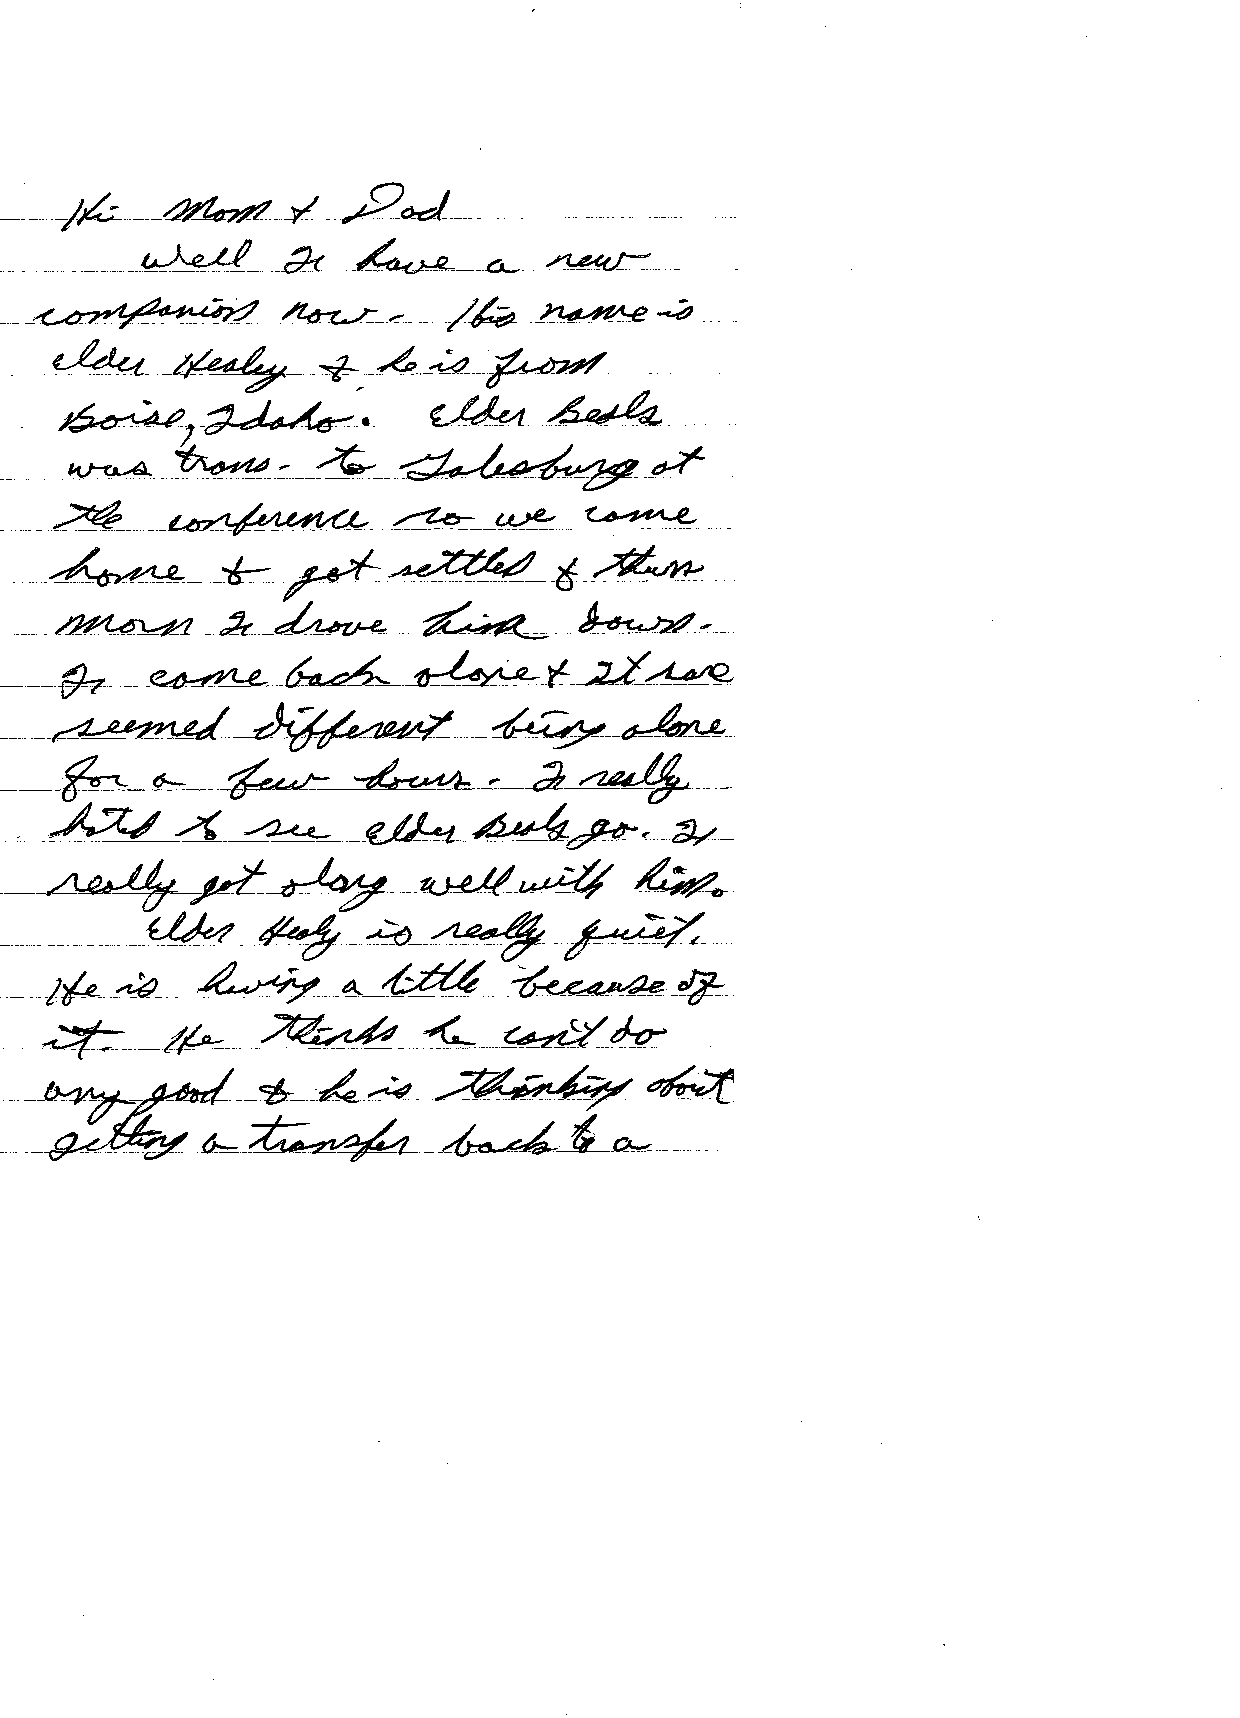 Hi Mom & Dad
Well I have a new
companion now. His name is
Elder Healey & he is from
Boise, Idaho. Elder Beals
was trans. to Galesburg at
the conference so we came
home & got settled & then
morn I drove him down.
I come back alone & It sure
seemed different being alone
for a few hours. I really
hated to see Elder Beals go. I
really got along well with him.
Elder Healy is really quiet.
He is having a little because of
it. He thinks he can't do
any good & he is thinking about
getting a transfer back to a